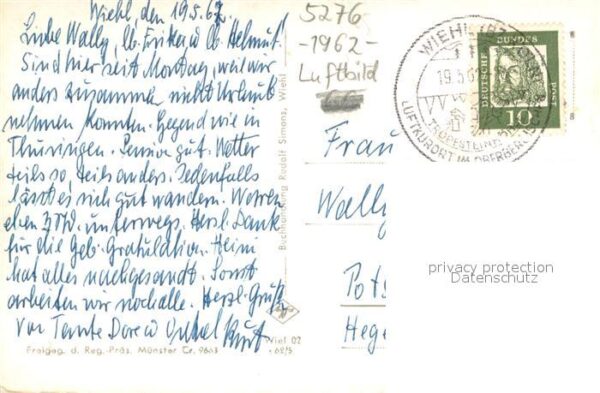 Wiehl, den 19.5.62
Liebe Wally, lb. Friker u lb. Helmut.
Sind hier seit Montag, weil wir
anders zusammen nicht Urlaub
nehmen konnten. Gegend wie in
Thüringen. Pension gut. Wetter
teils so, teils anders. Jedenfalls
lässt es sich gut wandern. Waren
eben 3 Std. unterwegs. Herzl. Dank
für die Geb. Gratulation. Heini
hat alles nachgesandt. Sonst
arbeiten wir noch alle. Herzl. Grüße
von Tante Dore u Onkel Kurt
Freigeg. d. Reg.-Präs. Münster Cr. 9663
Wiel 02
Buchhandlung Rudolf Simons, Wiehl
5276
-1962-
Luftbild
WIEHL
19.5.6
LUFTKURORT IM OBERBERG
DEUTSCHE BUNDESPOST
10
Frau
Wally
Pots
Hege
privacy protection
Datenschutz